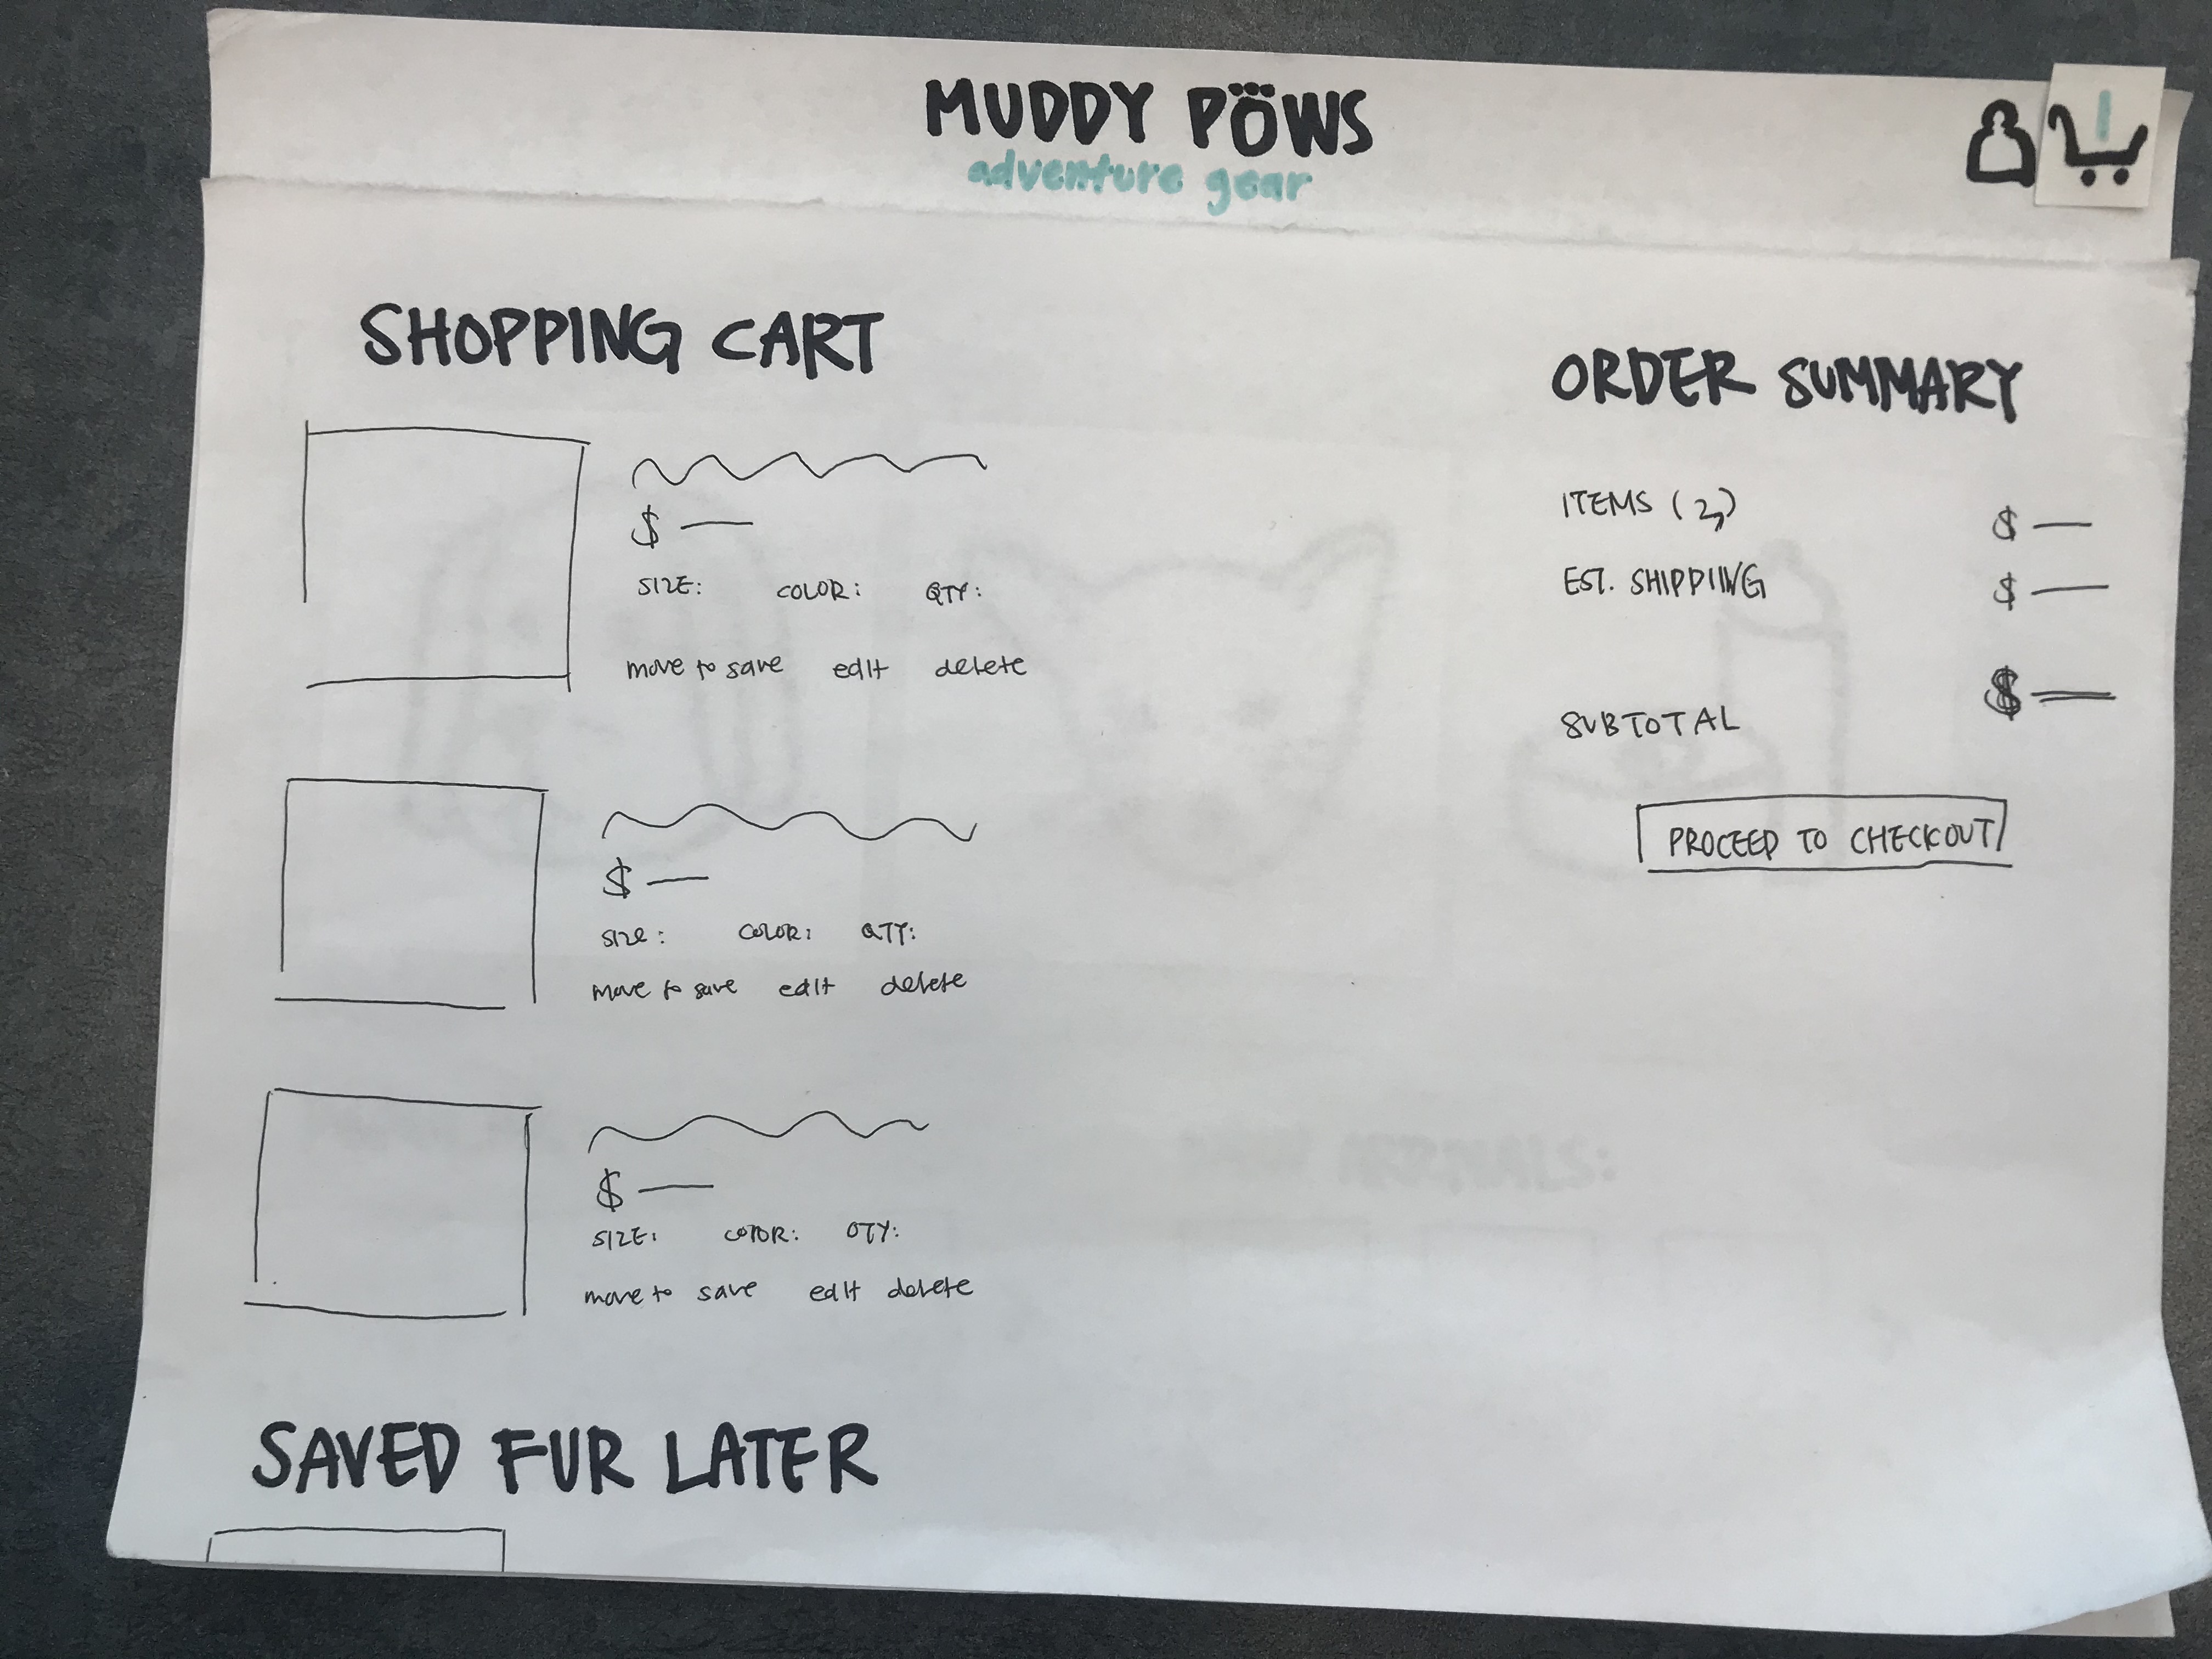 MUDDY PÖWS
adventure gear
1
SHOPPING CART
$
SIZE: COLOR: QTY:
move to save edit delete
$
SIZE: COLOR: QTY:
move to save edit delete
$
SIZE: COLOR: QTY:
move to save edit delete
SAVED FUR LATER
ORDER SUMMARY
ITEMS (2) $
EST. SHIPPING $
SUBTOTAL $
PROCEED TO CHECKOUT